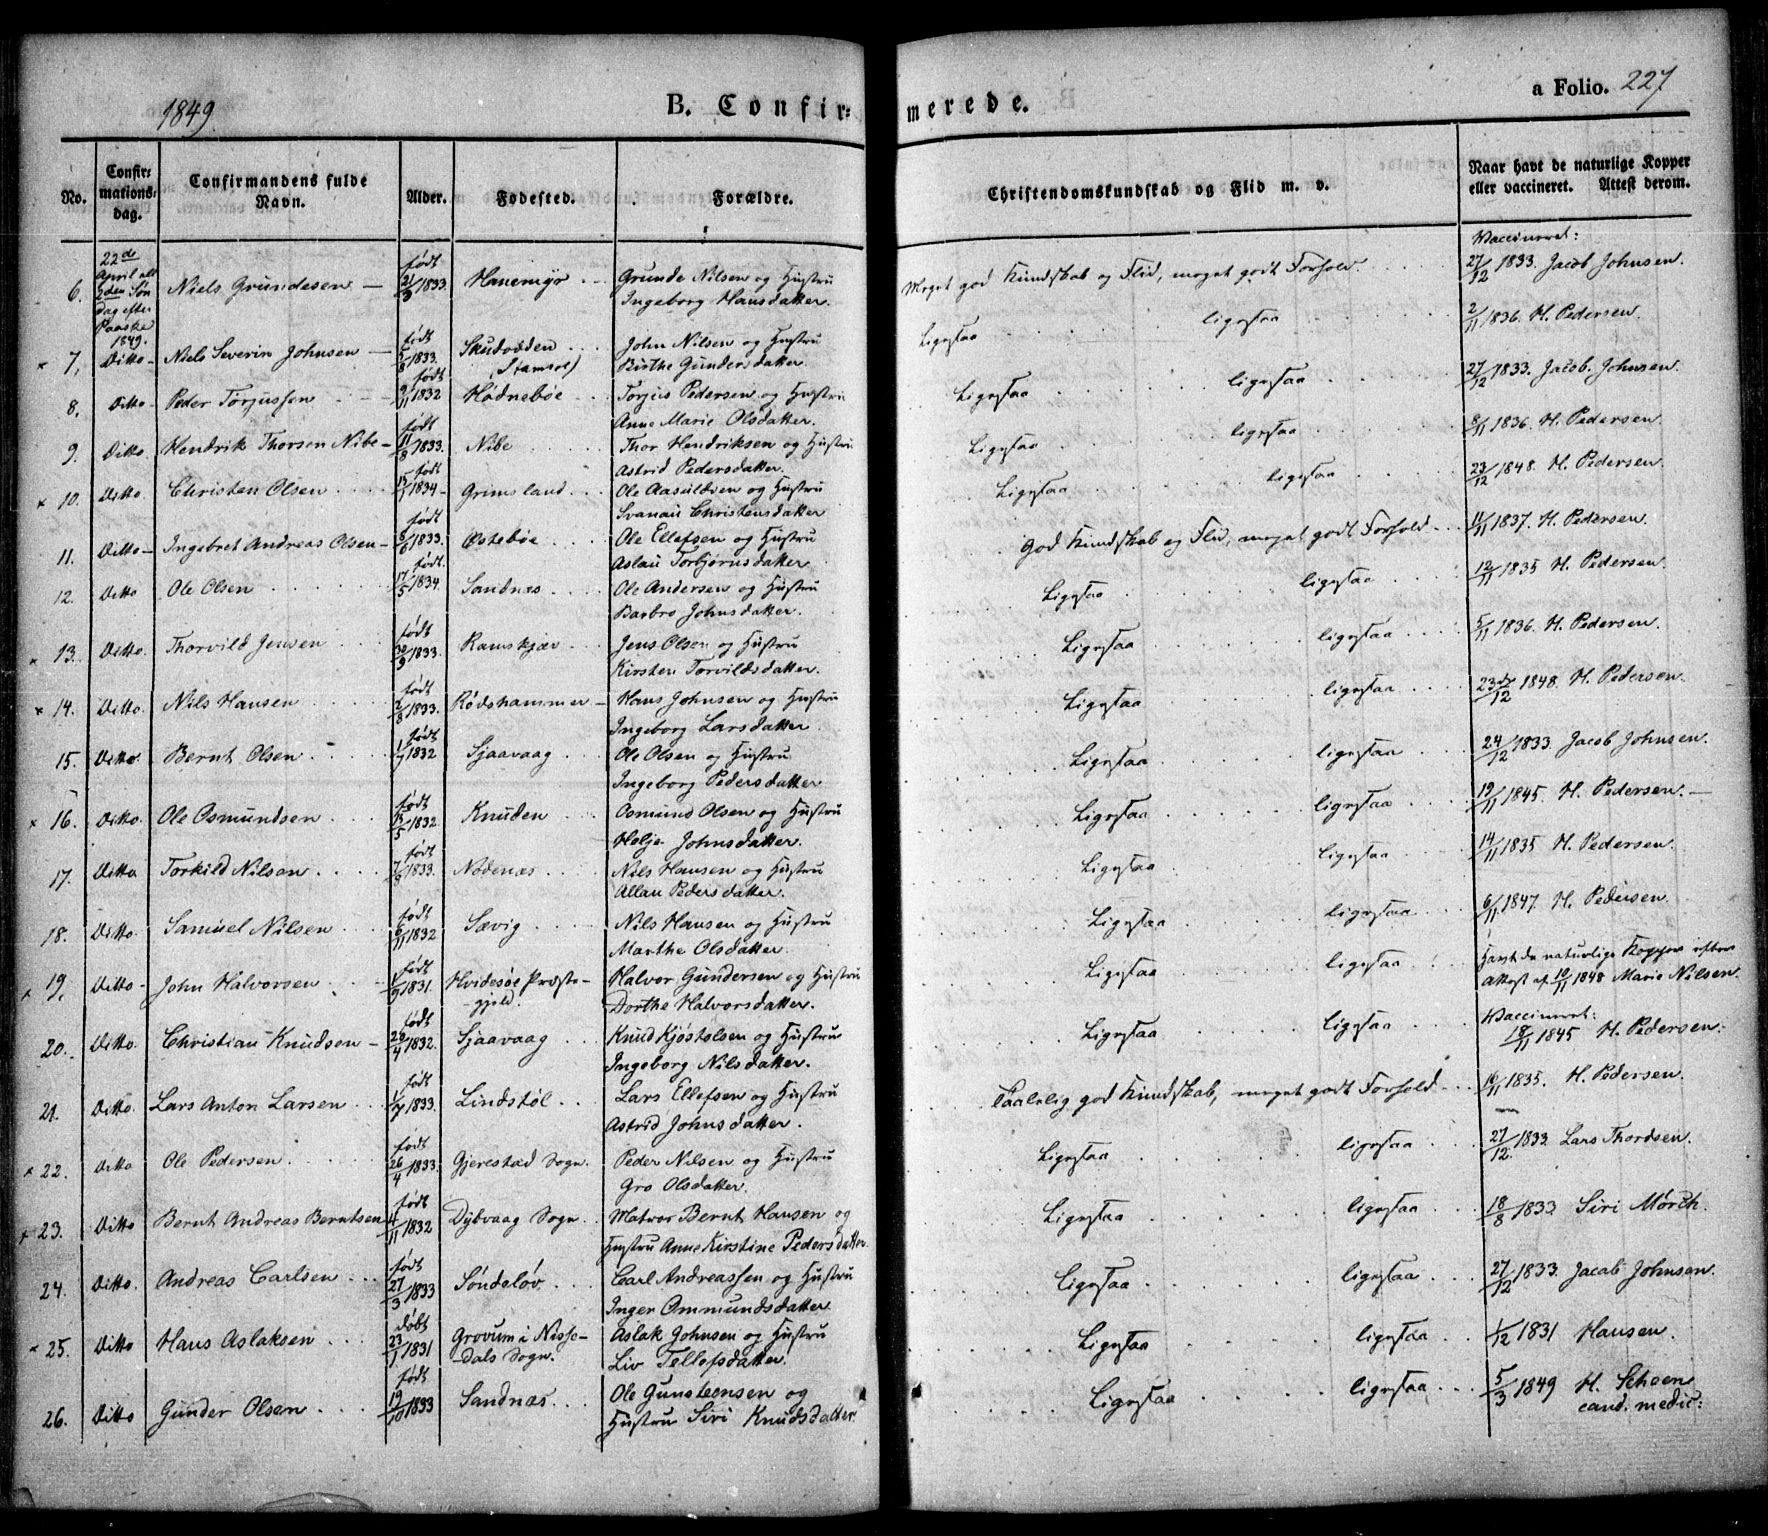 1849
B. Confir-
merede.
a Folio. 227
No. Confirmations-dag. Confirmandens fulde Navn. Alder. Fødested. Forældre. Christendomskundskab og Flid m. v. Naar havt de naturlige Kopper eller vaccineret. Attest derom.
6. 22de April all 2den Søndag efter Paaske 1849. Niels Grundesen født 21/3 1833. Hanemyr Grunde Nilsen og Hustru Ingeborg Hansdatter. Meget god Kundskab og Flid, meget godt Forhold. Vaccineret: 27/12 1833. Jacob Johnsen.
x 7. Ditto Niels Severin Johnsen født 5/8 1833. Skudodden (Stamsøe) John Nilsen og Hustru Birthe Gundersdatter. Ligesaa ligesaa 2/11 1836. H. Pedersen.
8. Ditto Peder Torjussen født 9/11 1832 Hødnebøe Torjus Pedersen og Hustru Anne Marie Olsdatter. Ligesaa ligesaa 27/12 1833. Jacob Johnsen.
9. Ditto. Hendrik Thorsen Nibe født 11/8 1833. Nibe Thor Hendriksen og Hustru Astrid Pedersdatter. Ligesaa ligesaa 8/11 1836. H. Pedersen.
x 10. Ditto Christen Olsen født 1834 Grimsland Ole Aasuldsen og Hustru Svanau Christensdatter Ligesaa ligesaa 23/12 1848. H. Pedersen.
11. Ditto Ingebret Andreas Olsen født 5/6 1833. Østebøe Ole Ellefsen og Hustru Aslau Torbjørnsdatter. God Kundskab og Flid, meget godt Forhold 11/11 1837. H. Pedersen.
12. Ditto Ole Olsen født. 17/5 1834 Sandnæs Ole Andersen og Hustru Barbro Johnsdatter. Ligesaa ligesaa 12/11 1835 H. Pedersen.
x 13. Ditto. Thorvild Jensen født 30/9 1833. Ramskjær Jens Olsen og Hustru Kirsten Torvildsdatter. Ligesaa ligesaa 5/11 1836. H. Pedersen.
x 14. Ditto. Nils Hansen født 2/8 1833. Rødshammer Hans Johnsen og Hustru Ingeborg Larsdatter Ligesaa ligesaa 23de/12 1848. H. Pedersen.
15. Ditto. Bernt Olsen født 1832 Sjaavaag Ole Olsen og Hustru Ingeborg Pedersdatter. Ligesaa ligesaa 24/12 1833. Jacob Johnsen.
x 16. Ditto. Ole Osmundsen født 13/5 1832. Knuden Osmund Olsen og Hustru Helje Johnsdatter. Ligesaa ligesaa 19/11 1845. H. Pedersen.
17. Ditto Torkild Nilsen født 7/8 1833. Nødenæs Nils Hansen og Hustru Allau Pedersdatter. Ligesaa ligesaa 14/11 1835 H. Pedersen.
18. Ditto. Samuel Nilsen født 6/11 1832 Sævig Nils Hansen og Hustru Marthe Olsdatter. Ligesaa ligesaa 6/11 1847. H. Pedersen.
x 19. Ditto John Halvorsen født 1/9 1831. Hvidesøe Præste-gjeld. Halvor Gundersen og Hustru Dorthe Halvorsdatter. Ligesaa ligesaa Havt de naturlige Kopper efter Attest af 10/11 1848 Marie Nilsen.
20. Ditto. Christian Knudsen født 26/4 1832. Sjaavaag Knud Kjøstolsen og Hustrue Ingeborg Nilsdatter. Ligesaa ligesaa Vaccineret: 18/11 1845 H. Pedersen:
21. Ditto. Lars Anton Larsen født 1833. Lindstøl Lars Ellefsen og Hustru Astrid Johnsdatter. Taalelig god Kundskab, meget godt Forhold 16/11 1835. H. Pedersen.
x 22. Ditto Ole Pedersen født 26/4 1833. Gjerestad Sogn. Peder Nilsen og Hustru Gro Olsdatter. Ligesaa ligesaa 27/12 1833. Lars Thordsen.
x 23. Ditto Bernt Andreas Berntsen født 4/11 1832 Dybvaag Sogn Matros Bernt Hansen og Hustru Anne Kirstine Pedersdatter. Ligesaa ligesaa 18/8 1833 Siri Mørch.
24. Ditto. Andreas Carlsen født 27/3 1833 Søndeløv Carl Andreassen og Hustru Inger Ommundsdatter Ligesaa ligesaa 27/12 1833 Jacob Johnsen.
x 25. Ditto Hans Aslaksen døbt 23/1 1831 Grovum i Nisse-dals Sogn. Aslak Johnsen og Hustru Liv Tellefsdatter. Ligesaa ligesaa 1/12 1831 Hansen.
26. Ditto Gunder Olsen født 19/10 1833 Sandnæs Ole Gunsteensen og Hustru Siri Knudsdatter Ligesaa ligesaa 5/3 1849 H. Scheen cand. medic: